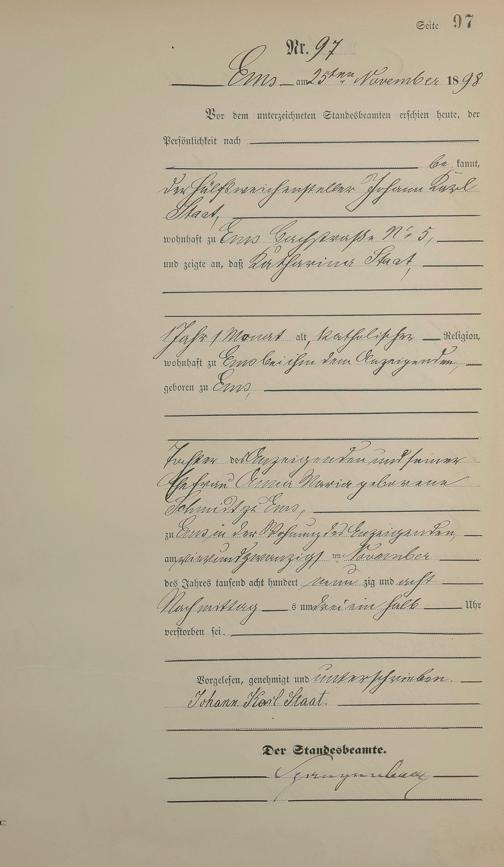 Seite 97
Nr. 97
Ems am 25ten November 1898
Vor dem unterzeichneten Standesbeamten erschien heute, der
Persönlichkeit nach
be kannt,
der Hülfsweichensteller Johann Karl
Staat,
wohnhaft zu Ems Bachstraße No 5,
und zeigte an, daß Katharina Staat,
1 Jahr 1 Monat alt, katholischer Religion,
wohnhaft zu Ems bei ihm dem Anzeigenden,
geboren zu Ems,
Tochter des Anzeigenden und seiner
Ehefrau Anna Maria geborene
Schmidt zu Ems,
zu Ems, in der Wohnung des Anzeigenden,
am vierundzwanzigsten November
des Jahres tausend acht hundert neun zig und acht
Nachmittag s um drei ein halb Uhr
verstorben sei.
Vorgelesen, genehmigt und unterschrieben.
Johann Karl Staat.
Der Standesbeamte.